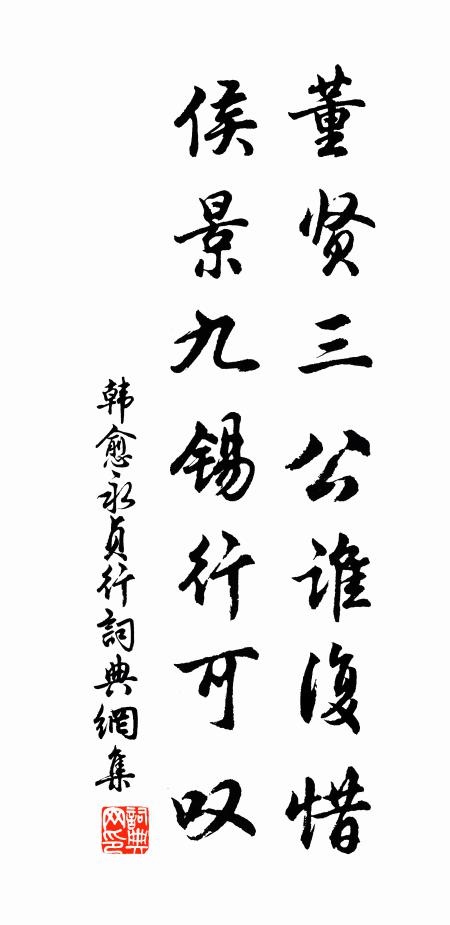 董贤三公谁復惜
侯景九锡行可叹
韩愈永贞行詞典網集
詞典网印